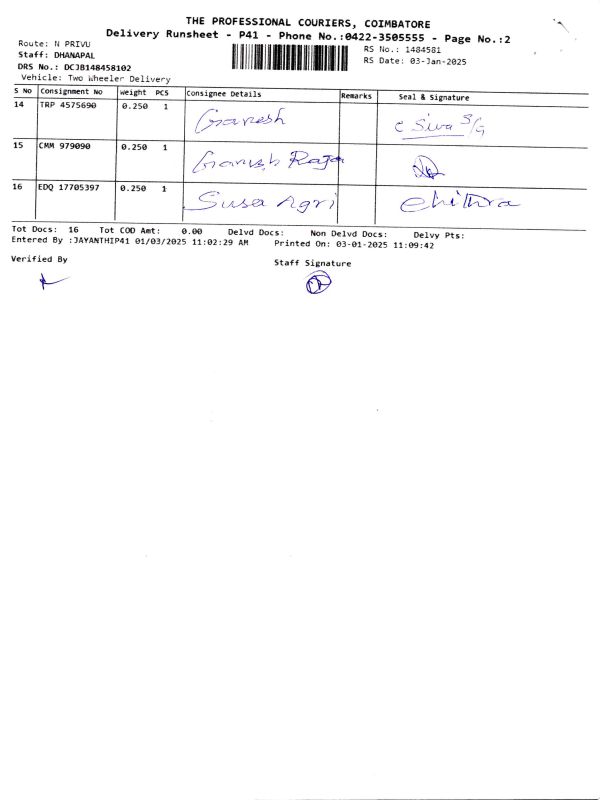 THE PROFESSIONAL COURIERS, COIMBATORE
Delivery Runsheet - P41 - Phone No.:0422-3505555 - Page No.:2
Route: N PRIVU
RS No.: 1484581
Staff: DHANAPAL
RS Date: 03-Jan-2025
DRS No.: DCJB148458102
Vehicle: Two Wheeler Delivery
S No Consignment No Weight PCS Consignee Details Remarks Seal & Signature
14 TRP 4575690 0.250 1 Ganesh C Siva S/G
15 CMM 979090 0.250 1 Ganesh Raja
16 EDQ 17705397 0.250 1 Susa Agri Chithra
Tot Docs: 16 Tot COD Amt: 0.00 Delvd Docs: Non Delvd Docs: Delvy Pts:
Entered By :JAYANTHIP41 01/03/2025 11:02:29 AM Printed On: 03-01-2025 11:09:42
Verified By Staff Signature